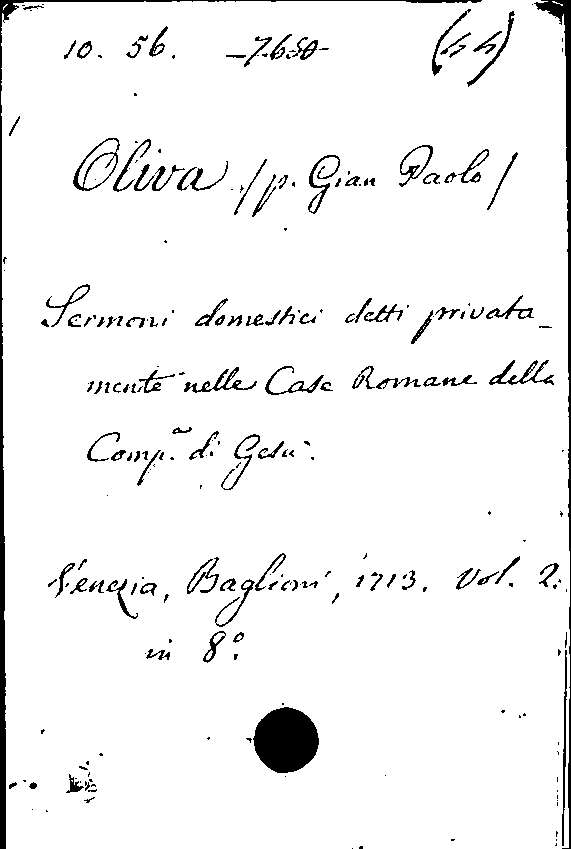 10. 56. -7.650- (44)
Oliva /p. Gian Paolo/
Sermoni domestici detti privata_
mente nelle Case Romane della
Comp.a di Gesù.
Venezia, Baglioni, 1713. Vol. 2.
in 8.o